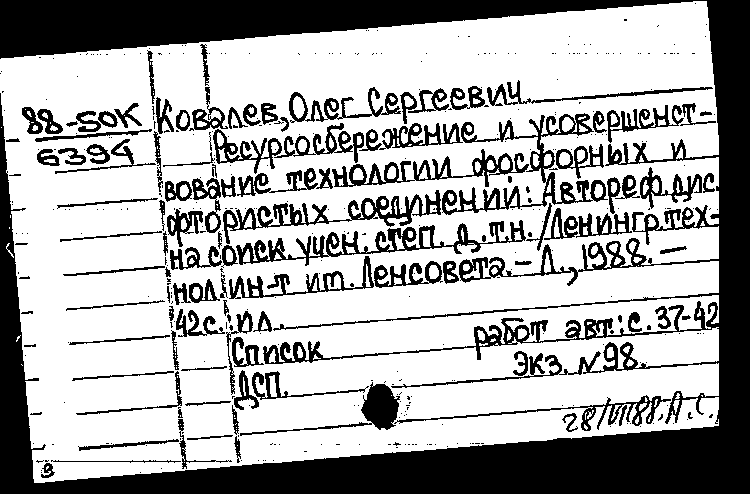 88-50К
6394
Ковалев, Олег Сергеевич.
Ресурсосбережение и усовершенст-
вование технологии фосфорных и
фтористых соединений: Автореф. дис.
на соиск. учен. степ. д.т.н. /Ленингр. тех-
нол. ин-т им. Ленсовета. - Л., 1988. -
42с.: ил.
Список работ авт.: с. 37-42
ДСП. Экз. N98.
28/VII88. А.С.
в